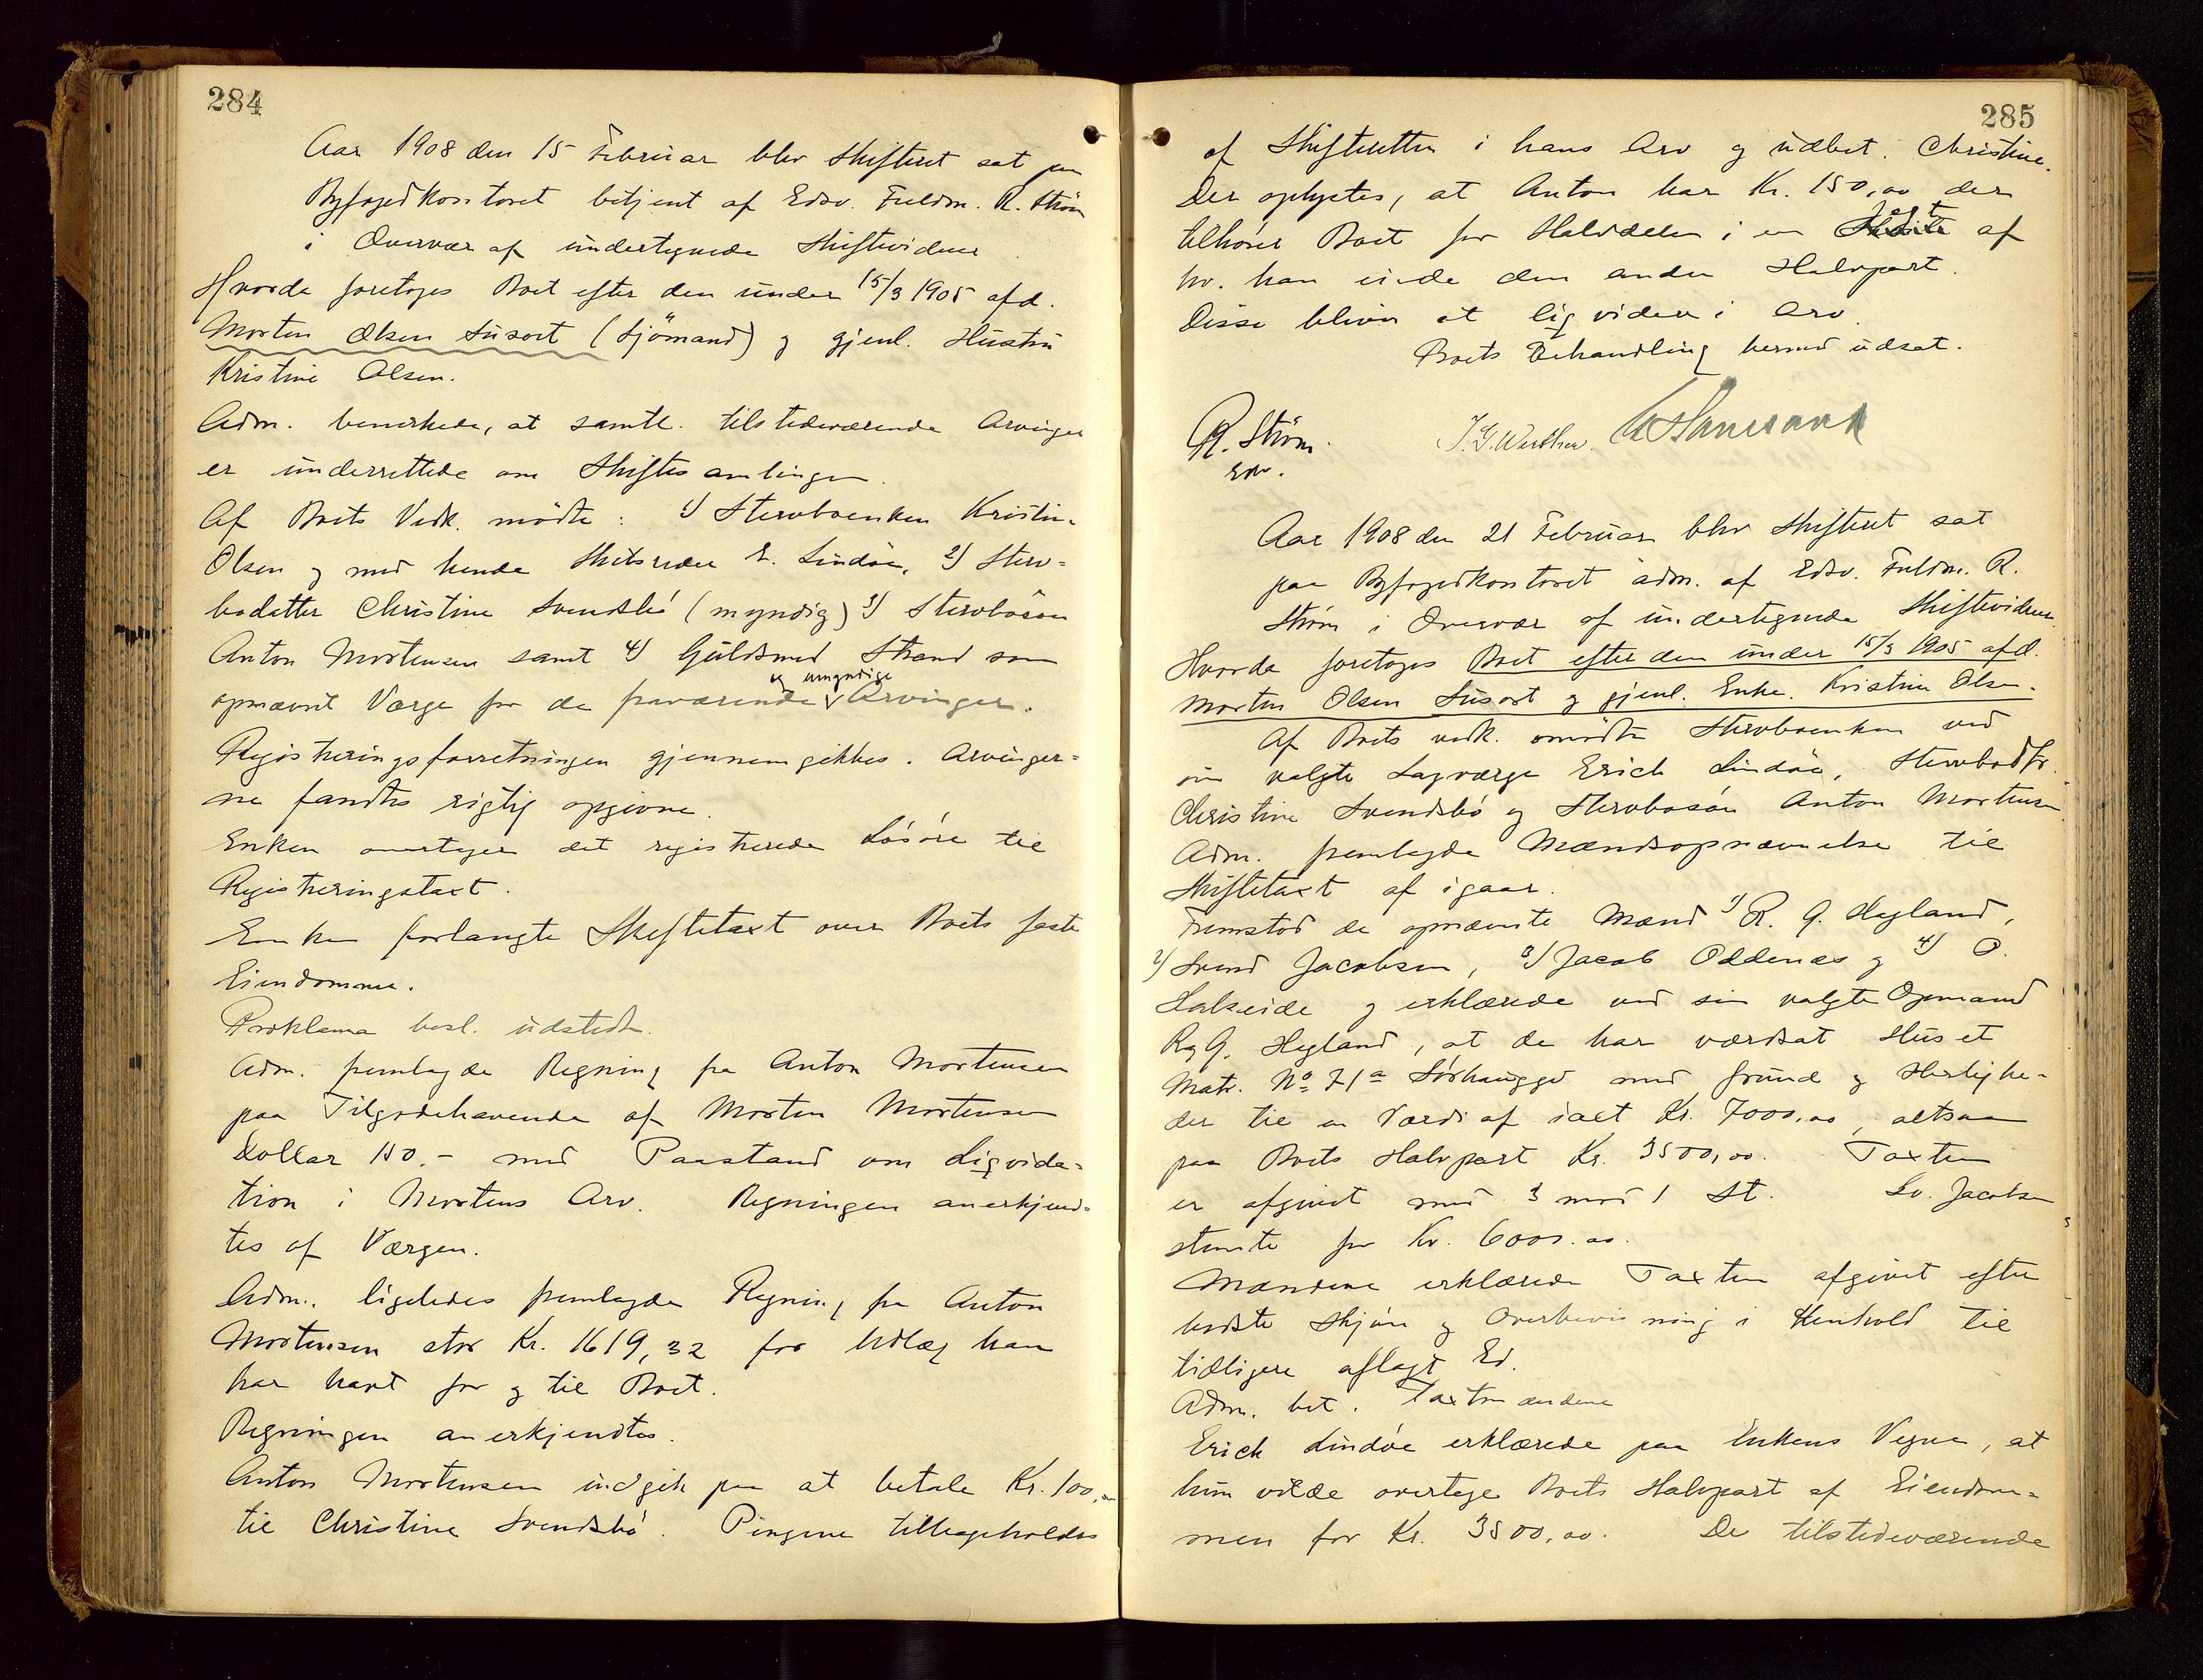 284
Aar 1908 den 15 Februar blev Skifteret sat paa
Byfogedkontoret betjent af Edsv. Fuldm. R. Strøm
i Overvær af undertegnede Skiftevidner
Hvorda foretoges Boet efter den under 15/3 1905 afd.
Morten Olsen Susort (Sjömand) og gjenl. Hustru
Kristine Olsen.
Adm. bemerkede, at samtl. tilstedeværende Arvinger
er underrettede om Skiftesamlingen.
Af Boets Vedk. mödte: 1) Stervboenken Kristine
Olsen og med hende Skibsreder E. Lindöe, 2) Sterv-
bodatter Christine Svendsbö (myndig) 3) Stervbosön
Anton Mortensen samt 4) Guldsmed Strand som
opnævnt Værge for de fraværende og umyndige Arvinger.
Registreringsforretningen gjennemgikkes. Arvinger-
ne fandtes rigtig opgivne.
Enken overtager det registrerede Lösöre til
Registreringstaxt.
Enken forlangte Skiftetaxt over Boets faste
Eiendomme.
Proklama besl. udstedt.
Adm. fremlagde Regning fra Anton Mortensen
paa Tilgodehavende af Morten Mortensen
Dollar 150.- med Paastand om Liqvida-
tion i Mortens Arv. Regningen anerkjend-
tes af Værgen.
Adm. ligeledes fremlagde Regning fra Anton
Mortensen stor Kr. 1619,32 for Udlæg han
har havt for og til Boet.
Regningen anerkjendtes.
Anton Mortensen indgik paa at betale Kr. 100,00
til Christine Svendsbö. Pengene tilbageholdes
285
af Skifteretten i hans Arv og udbet. Christine.
Der oplystes, at Anton har Kr. 150,00 der
tilhörer Boet for Halvdelen i en af
hv. han eiede den anden Halvpart.
Disse bliver at liqvidere i Arv.
Boets Behandling hermed udsat.
R. Strøm
Edsv.
J. G. Werther.
Aar 1908 den 21 Februar blev Skifteret sat
paa Byfogedkontoret adm. af Edsv. Fuldm. R.
Strøm i Overvær af undertegnede Skiftevidner
Hvorda foretoges Boet efter den under 15/3 1905 afd.
Morten Olsen Susort og gjenl. Enke. Kristine Olsen.
Af Boets vedk. mödte Stervboenken ved
sin valgte Lagværge Erich Lindöe, Stervbodtr.
Christine Svendsbö og Stervbosön Anton Mortensen
Adm. fremlagde Mændsopnævnelse til
Skiftetaxt af igaar.
Fremstod de opnævnte Mænd 1) R. G. Hagland,
2) Svend Jacobsen, 3) Jacob Oddenes og 4) O.
Halseide og erklærede ved sin valgte Opmand
R. G. Hagland, at de har værdsat Huset
Matr. No 71a Sörhaugge med Grund og Herlighe-
der til en Værdi af ialt Kr. 7000,00, altsaa
paa Boets Halvpart Kr. 3500,00. Taxten
er afgivet med 3 mod 1 St. Sv. Jacobsen
stemte for Kr. 6000.00.
Mændene erklærede Taxten afgivet efter
bedste Skjön og Overbevisning i Henhold til
tidligere aflagt Ed.
Adm. bet. Taxtmændene
Erich Lindöe erklærede paa Enkens Vegne, at
hun vilde overtage Boets Halvpart af Eiendom-
men for Kr. 3500,00. De tilstedeværende